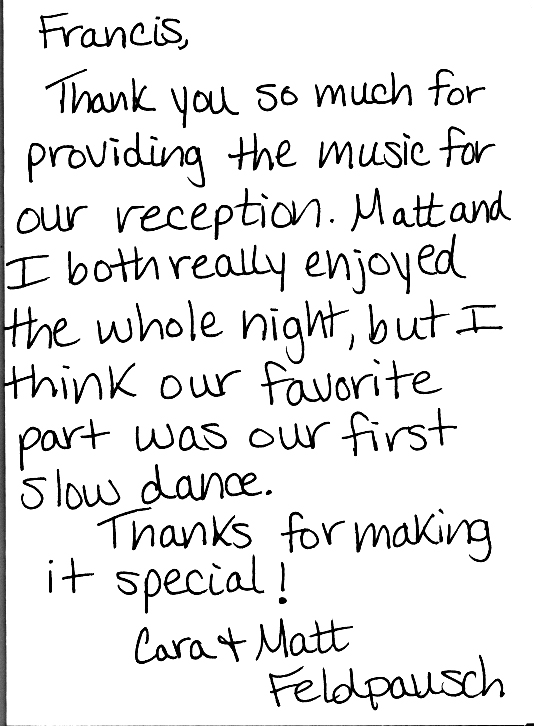 Francis,
Thank you so much for
providing the music for
our reception. Matt and
I both really enjoyed
the whole night, but I
think our favorite
part was our first
slow dance.
Thanks for making
it special!
Cara + Matt
Feldpausch